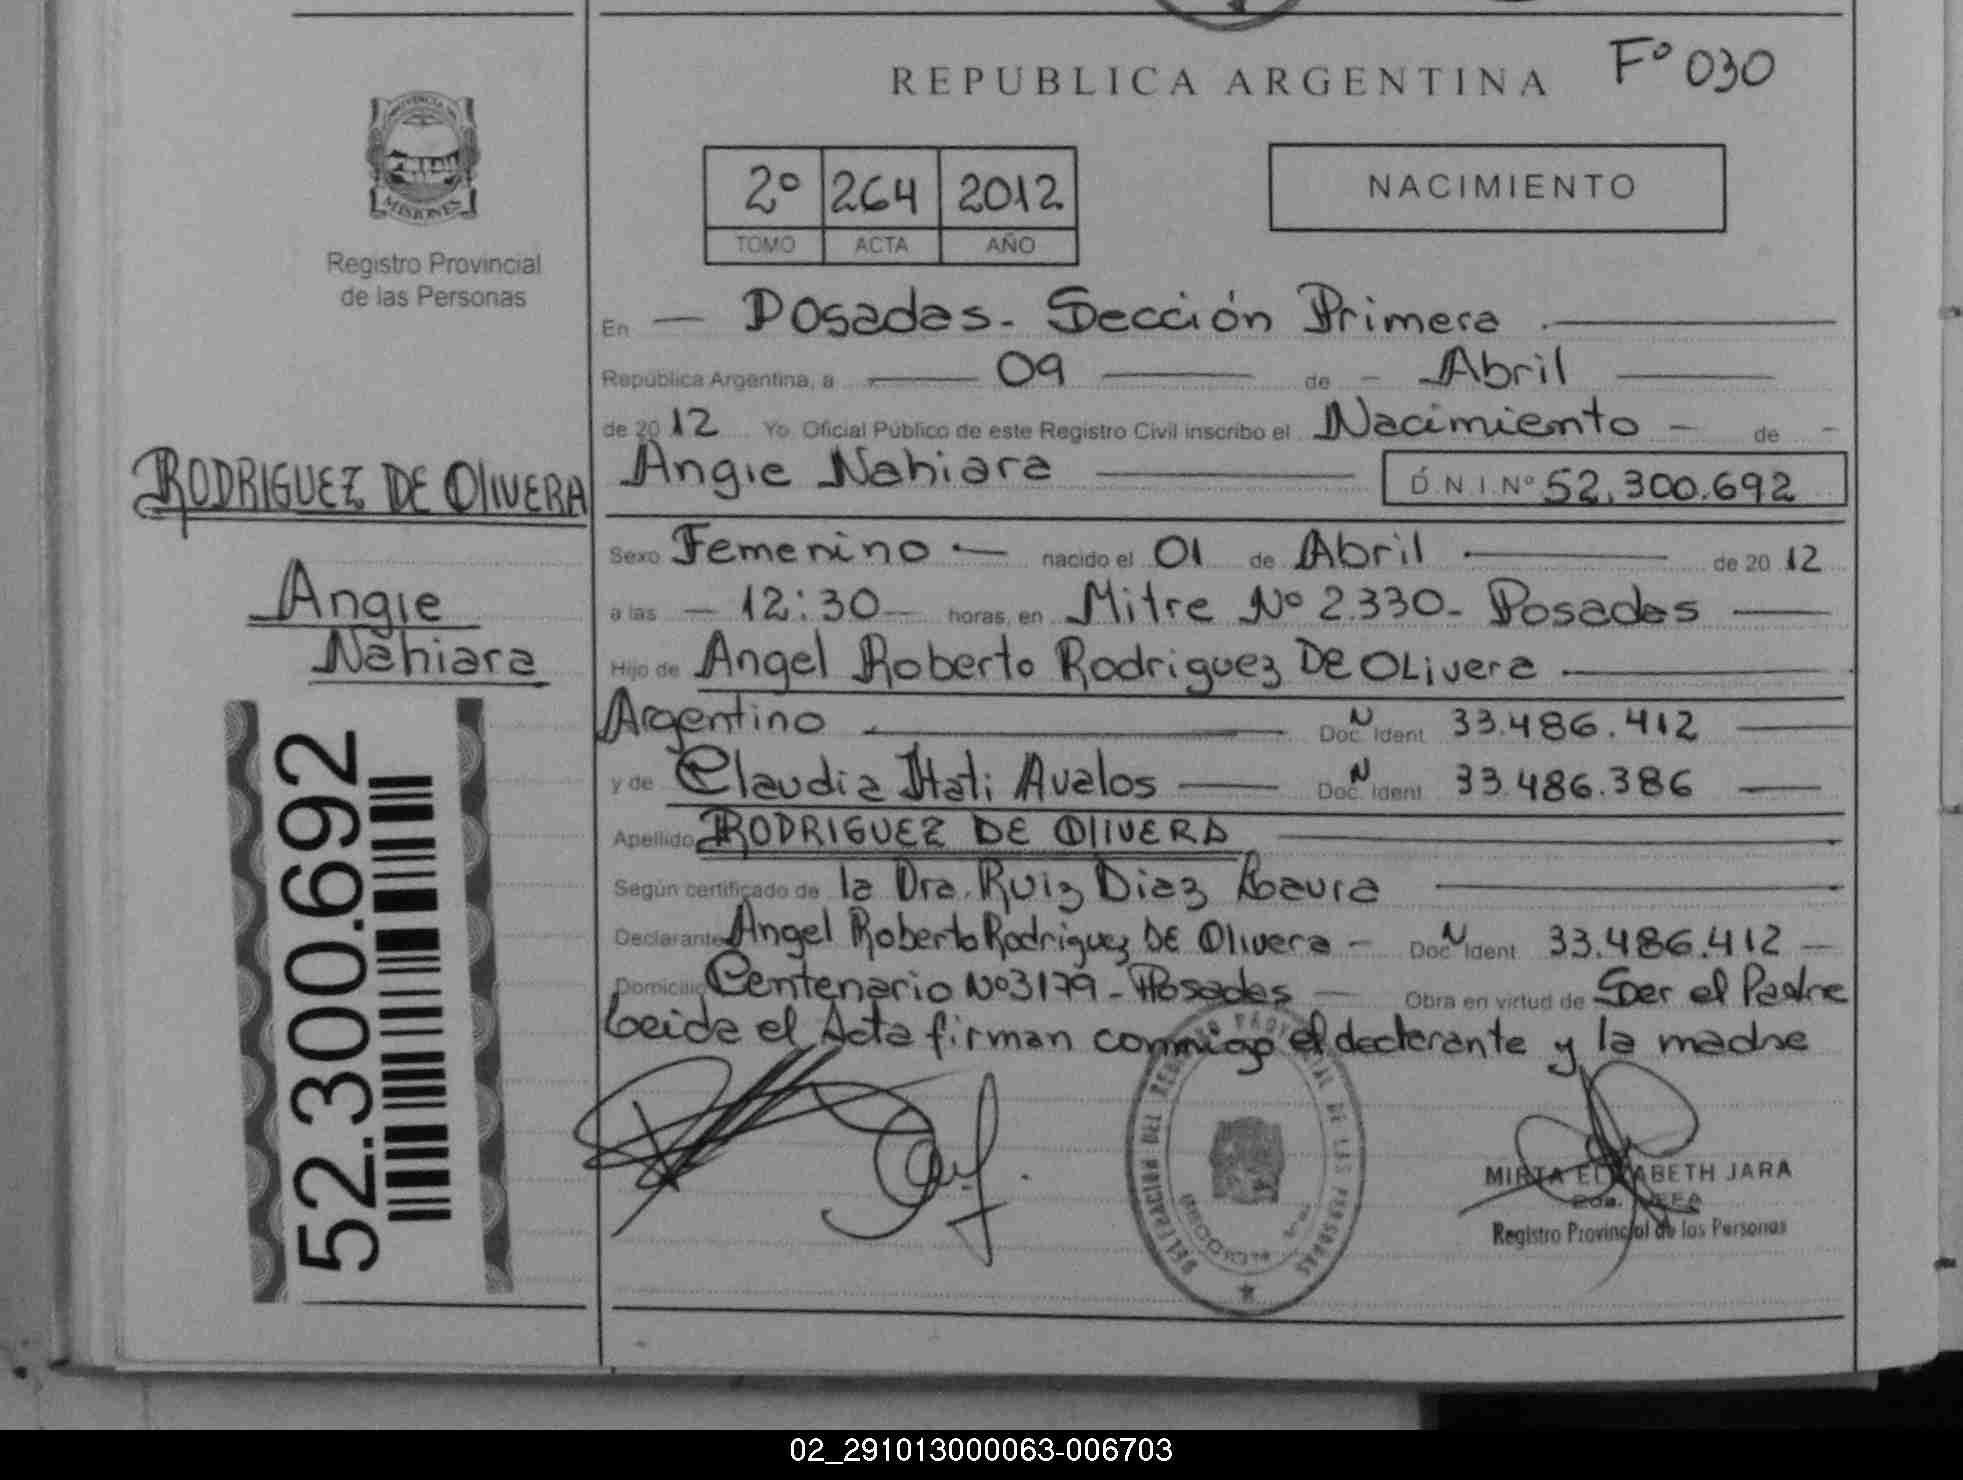 REPUBLICA ARGENTINA
Fº 030
PROVINCIA DE
MISIONES
Registro Provincial
de las Personas
2º 264 2012
TOMO ACTA AÑO
NACIMIENTO
En — Posadas - Sección Primera
República Argentina, a 09 de - Abril
de 2012 Yo Oficial Público de este Registro Civil inscribo el Nacimiento - de -
Angie Nahiara D.N.I.Nº 52.300.692
RODRIGUEZ DE OlIVERA
Angie
Nahiara
52.300.692
Sexo Femenino — nacido el 01 de Abril de 2012
a las — 12:30 — horas, en Mitre Nº 2.330 - Posadas
Hijo de Angel Roberto Rodriguez De OLivera
Argentino Doc. N Ident 33.486.412
y de Claudia Itati Avalos Doc. N Ident 33.486.386
Apellido RODRIGUEZ DE OlIVERA
Según certificado de la Dra. Ruiz Diaz Laura
Declarante Angel Roberto Rodriguez DE Olivera - Doc N Ident 33.486.412
Domicilio Centenario Nº 3179 - Posadas — Obra en virtud de Ser el Padre
Leida el Acta firman conmigo el declarante y la madre
DELEGACION DEL REGISTRO PROVINCIAL DE LAS PERSONAS
MIRTA ELIZABETH JARA
Registro Provincial de las Personas
02_291013000063-006703